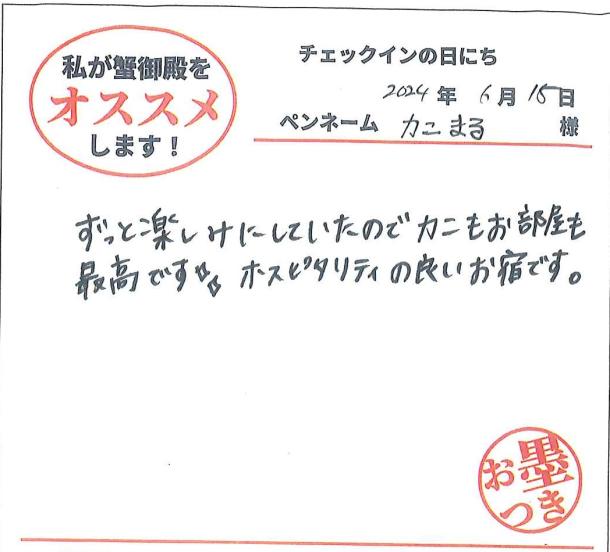 私が蟹御殿を
オススメ
します！
チェックインの日にち
2024年 6月 15日
ペンネーム カニまる 様
ずっと楽しけにしていたのでカニもお部屋も
最高です ホスピタリティの良いお宿です。
お墨
つき